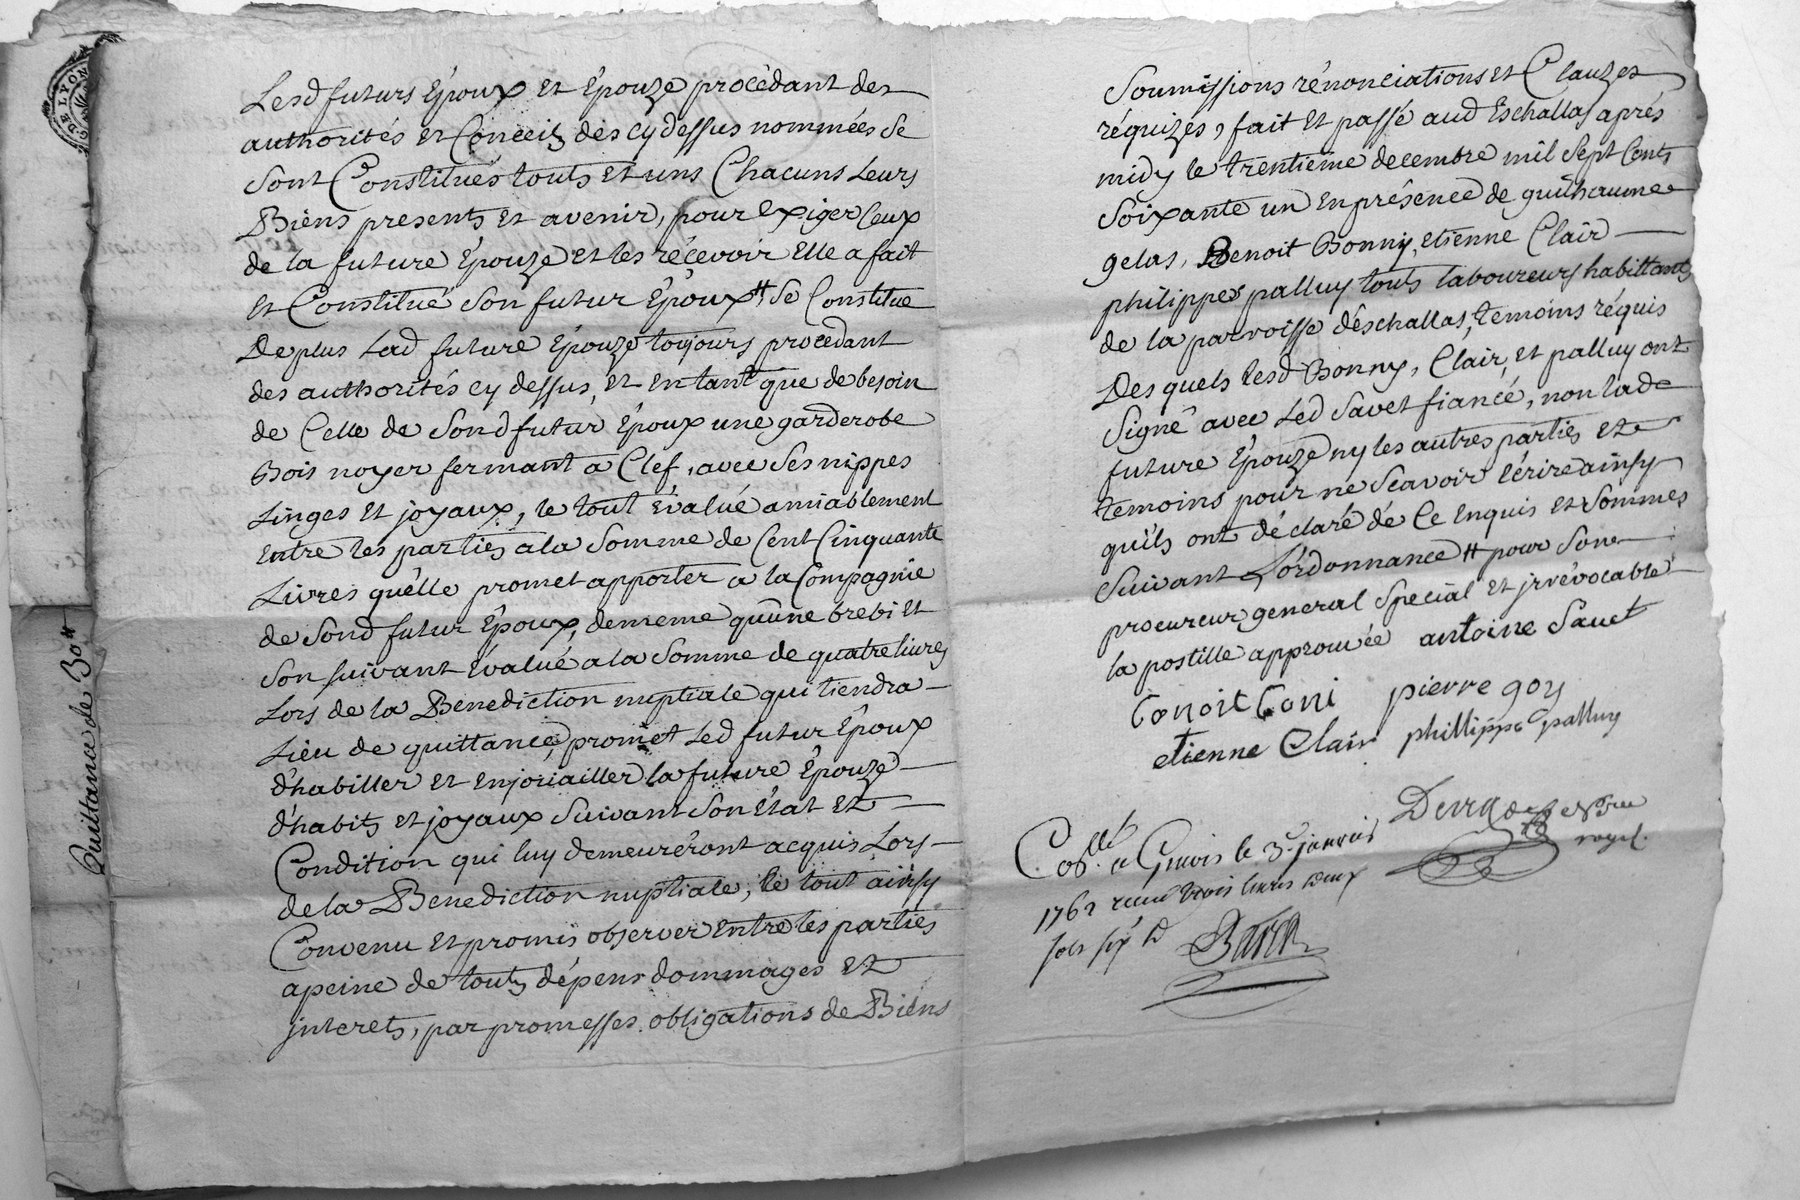 DE LYON
Quittance de 30#
Lesd futurs Époux et Épouze procédant des
authorités et Conceils des cy dessus nommées se
sont Constitués touts et uns Chacuns Leurs
Biens presents et avenir, pour exiger Ceux
de la future Épouze et les récevoir Elle a fait
et Constitué son futur Époux # se Constitue
De plus Lad future Épouze toujours procédant
des authorités cy dessus, et en tant que de besoin
de Celle de sond futur Époux une garderobe
Bois noyer fermant a Clef, avec ses nippes
Linges et joyaux, le tout Évalué amiablement
entre les parties a la somme de Cent Cinquante
Livres qu'elle promet apporter a la Compagnie
de sond futur Époux, de meme qu'une brebi et
son suivant Évalué a la somme de quatre livres
Lors de la Benediction nuptiale qui tiendra
Lieu de quittance, promet Led futur Époux
d'habiller et enjoüailler la future Épouze
d'habits et joyaux suivant son État et
Condition qui luy demeuréront acquis Lors
de la Benediction nuptiale, le tout ainsy
Convenu et promis observer entre les parties
a peine de touts dépens dommages et
interets, par promesses obligations de Biens
Soumissions rénonciations et Clauzes
réquizes, fait et passé aud Eschallas aprés
midy le trentieme decembre mil sept Cents
soixante un en présence de guilhaume
gelas, Benoit Bonny, etienne Clair
philippes palluy touts laboureurs habittants
de la parroisse d'éschallas, temoins réquis
Des quels lesd Bonny, Clair, et palluy ont
signé avec Led Savet fiancé, non lade
future Épouze ny les autres parties et
temoins pour ne sçavoir écrire ainsy
qu'ils ont déclaré de Ce enquis et sommés
suivant L'ordonnance # pour son
procureur general special et jrrévocable
la postille approuvée antoine Savet
pierre goy
etienne Clair phillippe palluy
royal.
a Givors le 3e janvier
1762 receu trois livres deux
sols six d